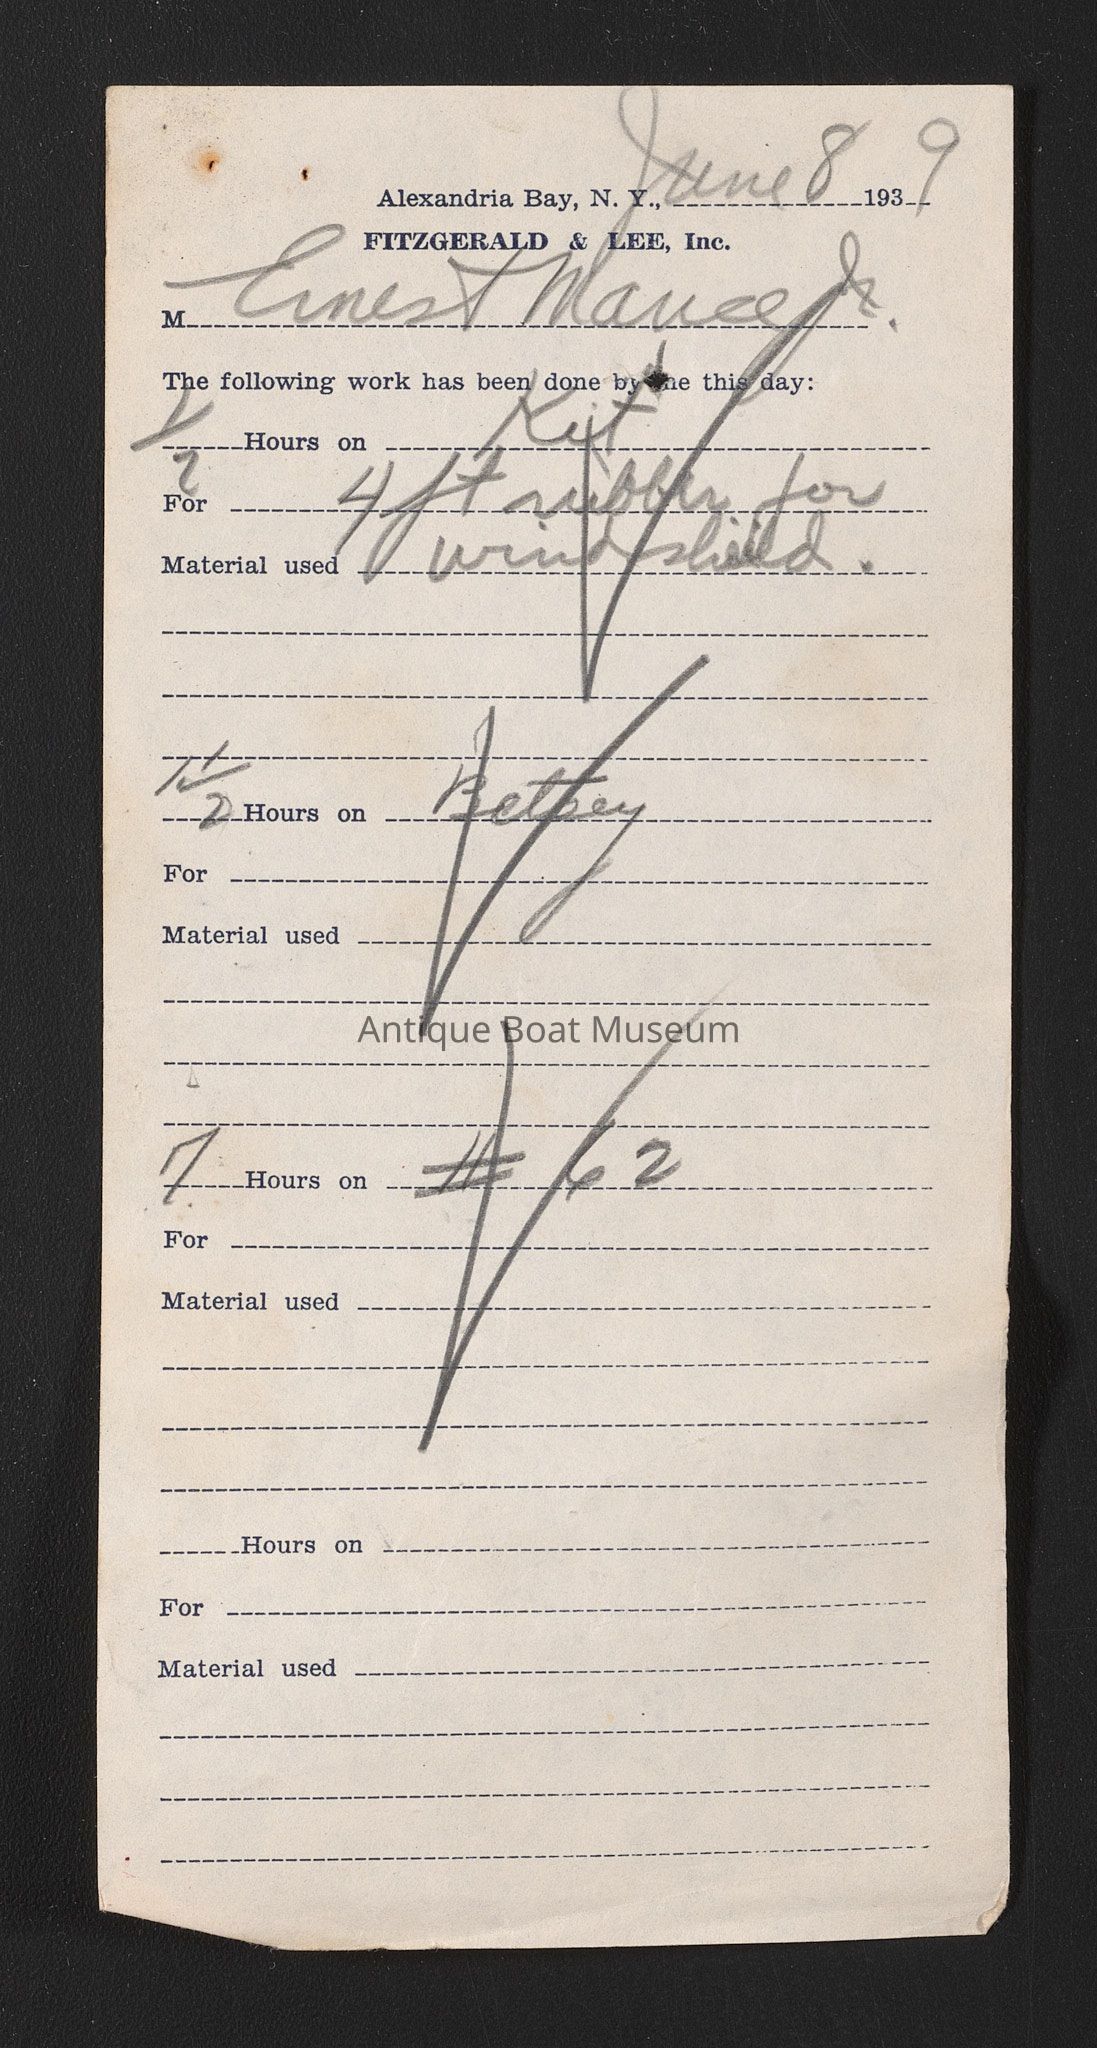 Alexandria Bay, N. Y., June 8 1939
FITZGERALD & LEE, Inc.
M Ernest Mance Jr.
The following work has been done by me this day:
1/2 Hours on Kit
For 4 ft rubber for
Material used windshield.
1 1/2 Hours on Betsey
For
Material used
Antique Boat Museum
7 Hours on # 62
For
Material used
Hours on
For
Material used